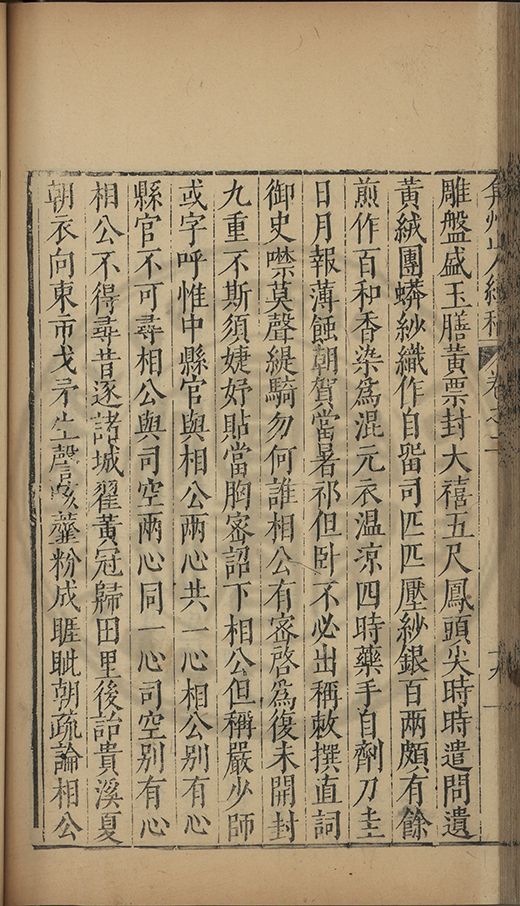 弇州山人續稿 卷之二
雕盤盛玉膳黃票封大禧五尺鳳頭尖時時遣問遺
黃絨團蟒紗織作自留司匹匹壓紗銀百兩頗有餘
煎作百和香染爲混元衣溫凉四時藥手自劑刀圭
日月報薄蝕朝賀當暑祁但卧不必出稱敕撰直詞
御史噤莫聲緹騎勿何誰相公有密啓爲復未開封
九重不斯須婕妤貼當胸密詔下相公但稱嚴少師
或字呼惟中縣官與相公兩心共一心相公别有心
縣官不可尋相公與司空兩心同一心司空别有心
相公不得尋昔逐諸城翟黃冠歸田里後詒貴溪夏
朝衣向東市戈矛生謦欬虀粉成睚眦朝疏論相公